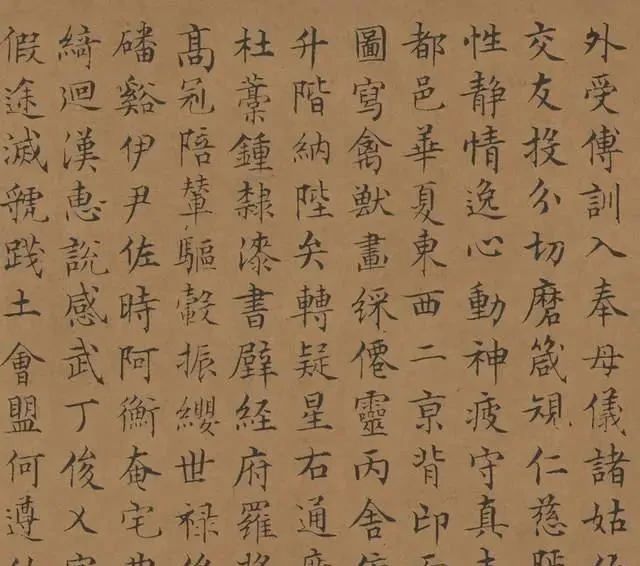 外受傅訓入奉母儀諸姑
交友投分切磨箴規仁慈
性靜情逸心動神疲守真
都邑華夏東西二亰背邙
圖寫禽獸畫綵僊靈丙舍
升階納陛矣轉疑星右通
杜藁鍾隸漆書壁経府羅
髙冠陪輦驅轂振纓世禄
磻谿伊尹佐時阿衡奄宅
綺迴漢惠說感武丁俊乂
假途滅虢踐土會盟何遵